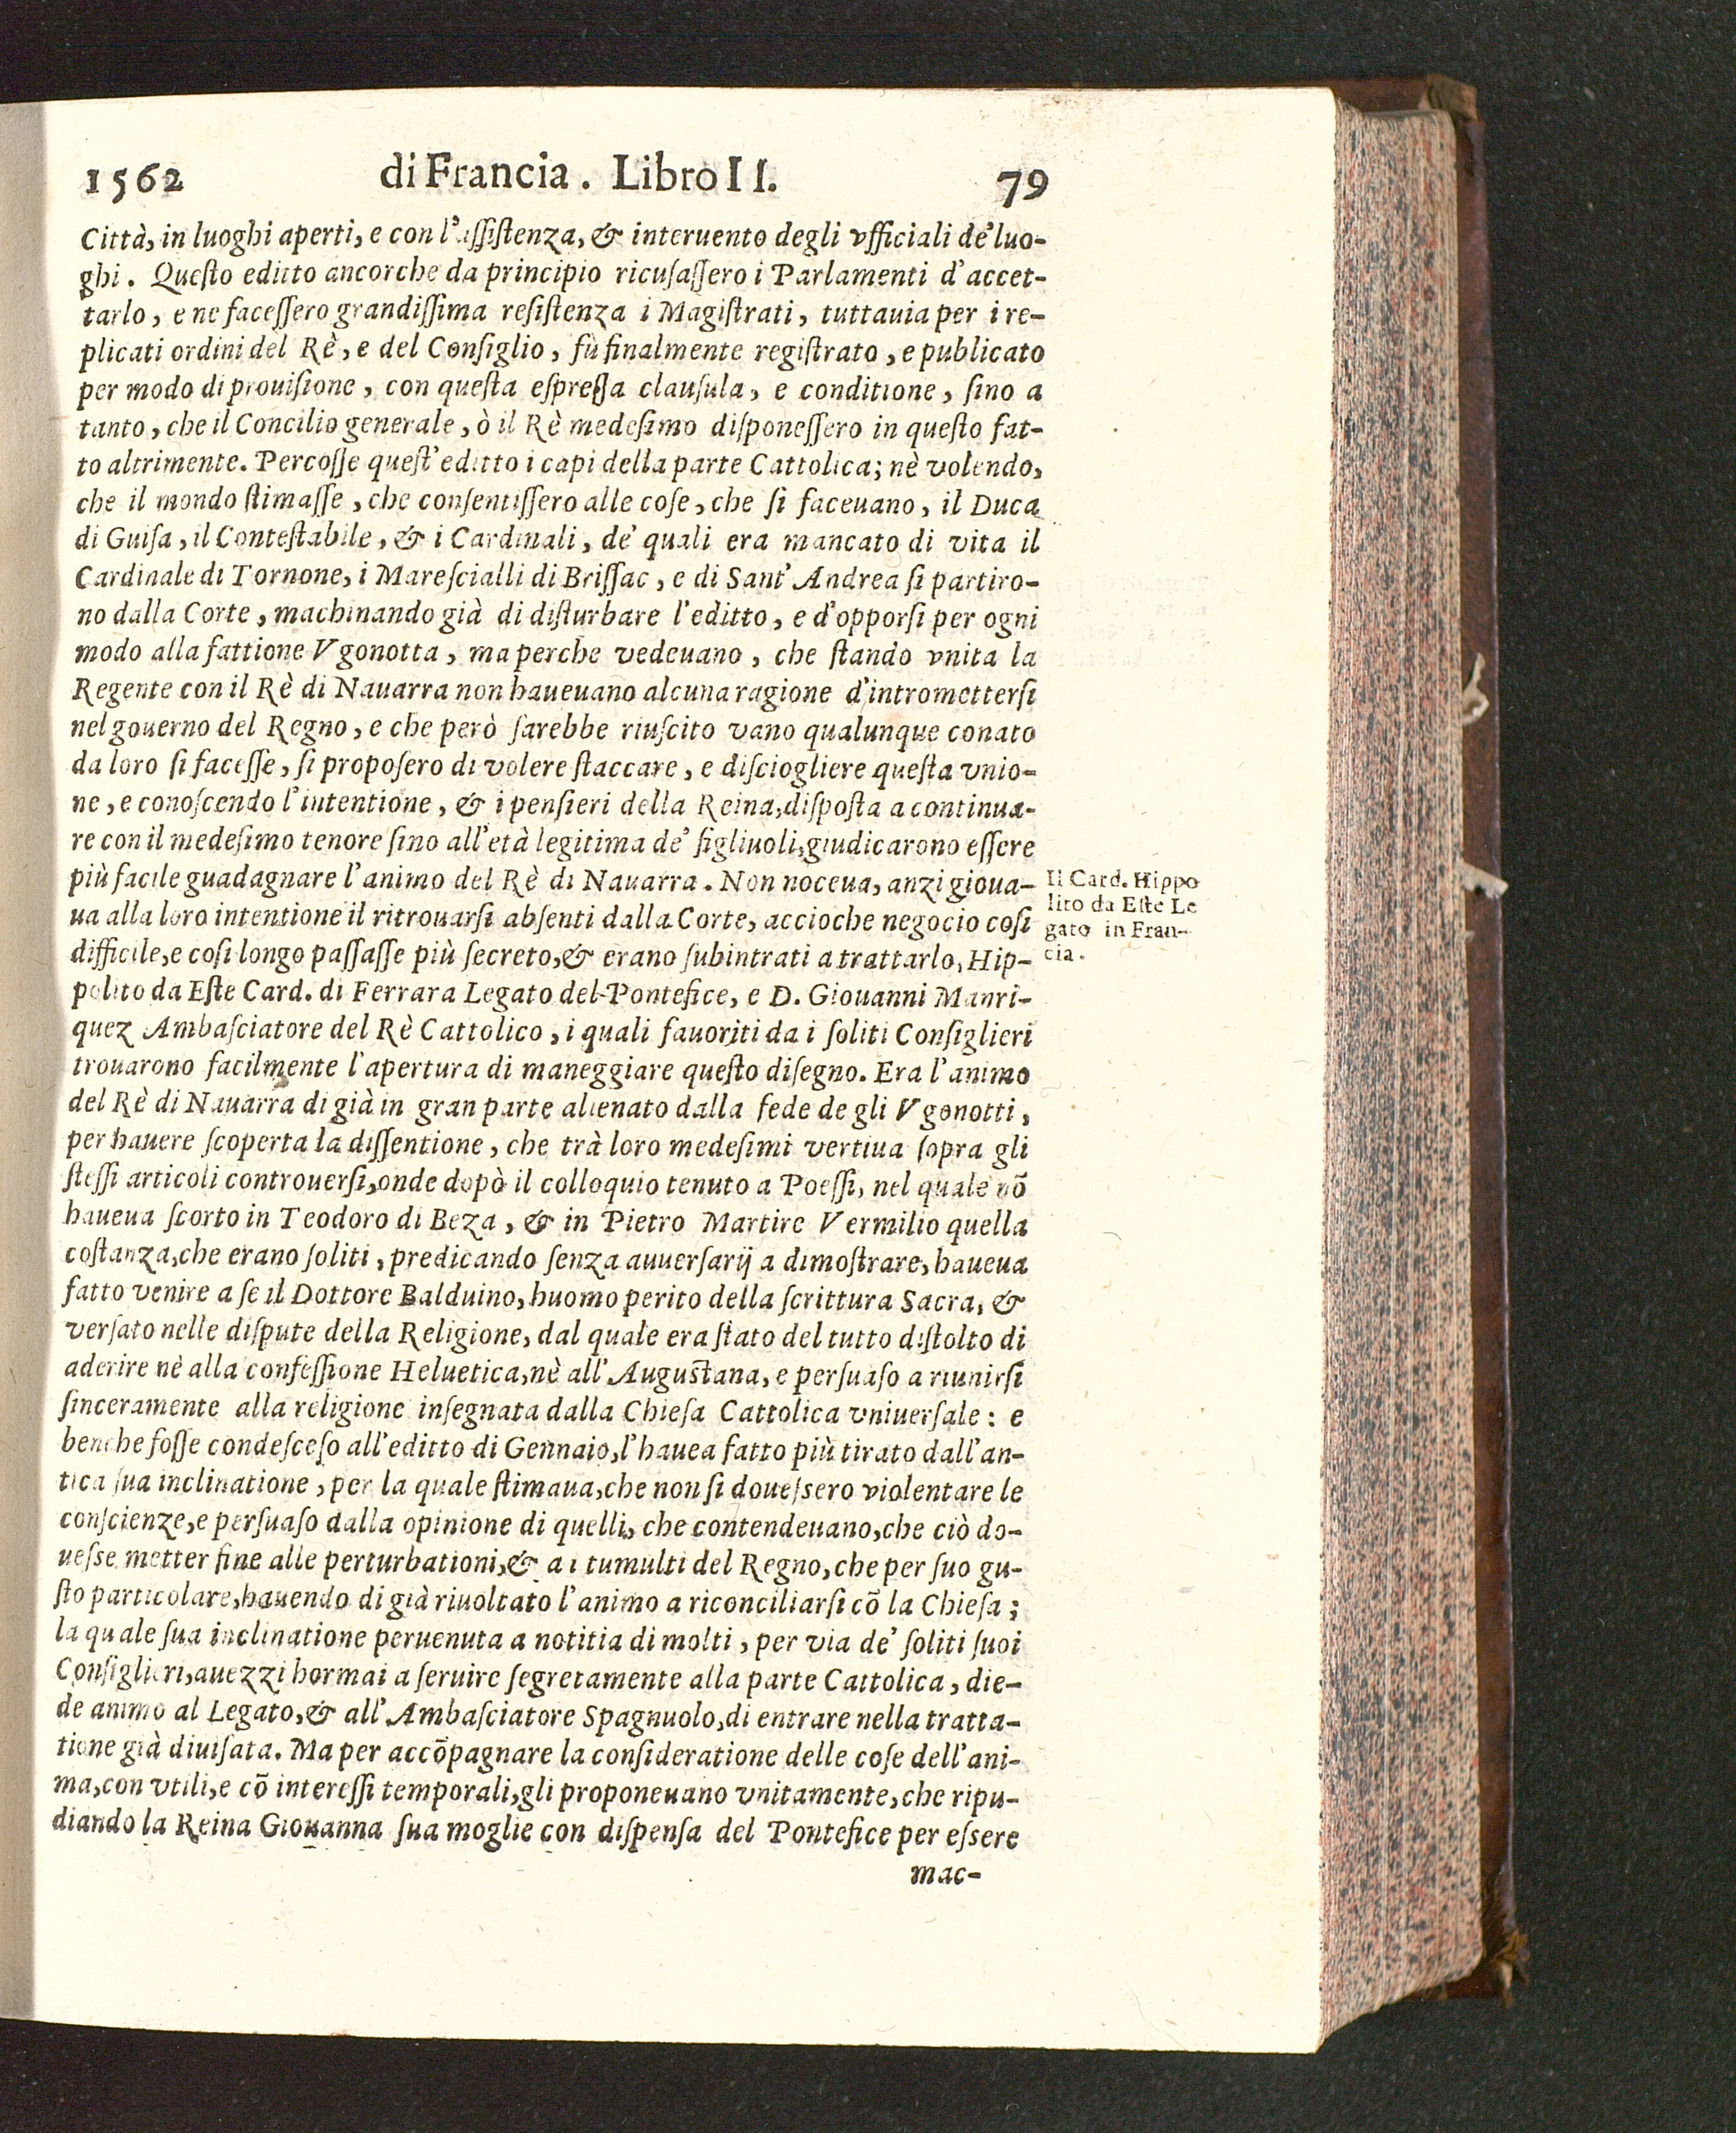 1562 di Francia. Libro II. 79
Città, in luoghi aperti, e con l'assistenza, & interuento degli vfficiali de' luo-
ghi. Questo editto ancorche da principio ricusassero i Parlamenti d'accet-
tarlo, e ne facessero grandissima resistenza i Magistrati, tuttauia per i re-
plicati ordini del Rè, e del Consiglio, fù finalmente registrato, e publicato
per modo di prouisione, con questa espressa clausula, e conditione, sino a
tanto, che il Concilio generale, ò il Rè medesimo disponessero in questo fat-
to altrimente. Percosse quest' editto i capi della parte Cattolica; nè volendo,
che il mondo stimasse, che consentissero alle cose, che si faceuano, il Duca
di Guisa, il Contestabile, & i Cardinali, de' quali era mancato di vita il
Cardinale di Tornone, i Marescialli di Brissac, e di Sant' Andrea si partiro-
no dalla Corte, machinando già di disturbare l'editto, e d'opporsi per ogni
modo alla fattione Vgonotta, ma perche vedeuano, che stando vnita la
Regente con il Rè di Nauarra non haueuano alcuna ragione d'intromettersi
nel gouerno del Regno, e che però sarebbe riuscito vano qualunque conato
da loro si facesse, si proposero di volere staccare, e disciogliere questa vnio-
ne, e conoscendo l'intentione, & i pensieri della Reina, disposta a continua-
re con il medesimo tenore sino all'età legitima de' figliuoli, giudicarono essere
più facile guadagnare l'animo del Rè di Nauarra. Non noceua, anzi gioua-
ua alla loro intentione il ritrouarsi absenti dalla Corte, accioche negocio così
difficile, e così longo passasse più secreto, & erano subintrati a trattarlo, Hip-
polito da Este Card. di Ferrara Legato del Pontefice, e D. Giouanni Manri-
quez Ambasciatore del Rè Cattolico, i quali fauoriti da i soliti Consiglieri
trouarono facilmente l'apertura di maneggiare questo disegno. Era l'animo
del Rè di Nauarra di già in gran parte alienato dalla fede de gli Vgonotti,
per hauere scoperta la dissentione, che trà loro medesimi vertiua sopra gli
stessi articoli controuersi, onde dopò il colloquio tenuto a Poessi, nel quale nõ
haueua scorto in Teodoro di Beza, & in Pietro Martire Vermilio quella
costanza, che erano soliti, predicando senza auuersarij a dimostrare, haueua
fatto venire a se il Dottore Balduino, huomo perito della scrittura Sacra, &
versato nelle dispute della Religione, dal quale era stato del tutto distolto di
aderire nè alla confessione Heluetica, nè all' Augustana, e persuaso a riunirsi
sinceramente alla religione insegnata dalla Chiesa Cattolica vniuersale: e
benche fosse condesceso all'editto di Gennaio, l'hauea fatto più tirato dall'an-
tica sua inclinatione, per la quale stimaua, che non si douessero violentare le
conscienze, e persuaso dalla opinione di quelli, che contendeuano, che ciò do-
uesse metter fine alle perturbationi, & a i tumulti del Regno, che per suo gu-
sto particolare, hauendo di già riuoltato l'animo a riconciliarsi cõ la Chiesa;
la quale sua inclinatione peruenuta a notitia di molti, per via de' soliti suoi
Consiglieri, auezzi hormai a seruire segretamente alla parte Cattolica, die-
de animo al Legato, & all' Ambasciatore Spagnuolo, di entrare nella tratta-
tione già diuisata. Ma per accõpagnare la consideratione delle cose dell'ani-
ma, con vtili, e cõ interessi temporali, gli proponeuano vnitamente, che ripu-
diando la Reina Giouanna sua moglie con dispensa del Pontefice per essere
mac-
Il Card. Hippo
lito da Este Le
gato in Fran-
cia.